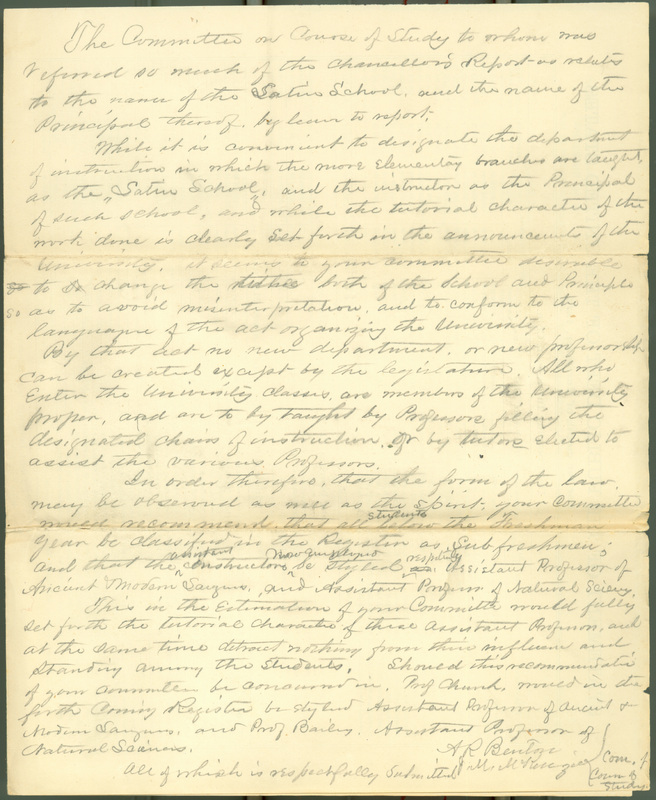 The Committee on Course of Study to whom was
referred so much of the Chancellor's Report as relates
to the name of the Latin School, and the name of the
Principal thereof, beg leave to report.
While it is convenient to designate the department
of instruction in which the more Elementary branches are taught,
as the "Latin School", and the instructor as the Principal
of such school, and while the tutorial character of the
work done is clearly set forth in the announcements of the
University, it seems to your committee desirable
to change the titles both of the School and Principle
so as to avoid misinterpretation, and to conform to the
language of the act organizing the University.
By that act no new department, or new professorship
can be created except by the legislature. All who
Enter the University classes, are members of the University
proper, and are to by taught by Professors filling the
designated chairs of instruction, or by tutors elected to
assist the various Professors.
In order therefore, that the form of the law
may be observed as well as the spirit, your Committee
would recommend, that all students below the Freshman
year be classified in the Register as Subfreshmen;
and that the assistant instructors now employed be styled respectively Assistant Professor of
Ancient & Modern Languages, and Assistant Professor of Natural Science.
This in the Estimation of your Committee would fully
set forth the tutorial character of these Assistant Professors, and
at the same time detract nothing from their influence and
standing among the Students. Should this recommendation
of your committee be concurred in, Prof Church, would in the
forth Coming Register be styled Assistant Professor of Ancient &
Modern Languages, and Prof. Bailey, Assistant Professor of
Natural Sciences.
All of which is respectfully Submitted
A R Benton
Com. of
Course of
Study